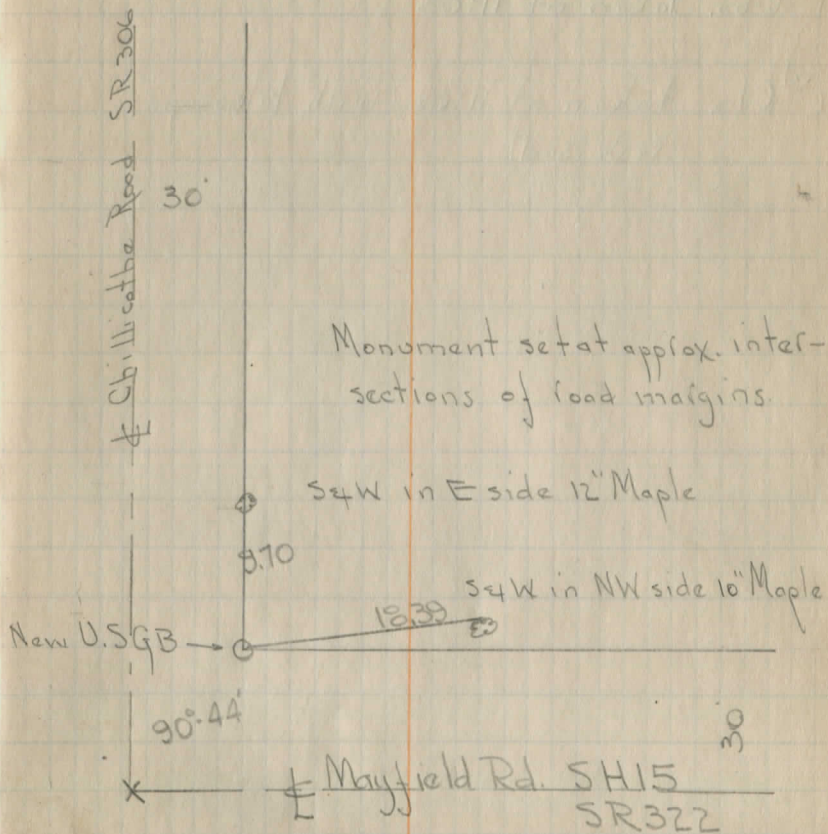 ℄ Chillicothe Road SR306
30'
Monument set at approx. inter-
sections of road margins.
S&W in E side 12" Maple
8.70
S&W in NW side 10" Maple
18.39
New U.S.G.B
90°-44'
30
℄ Mayfield Rd. SH15
SR322